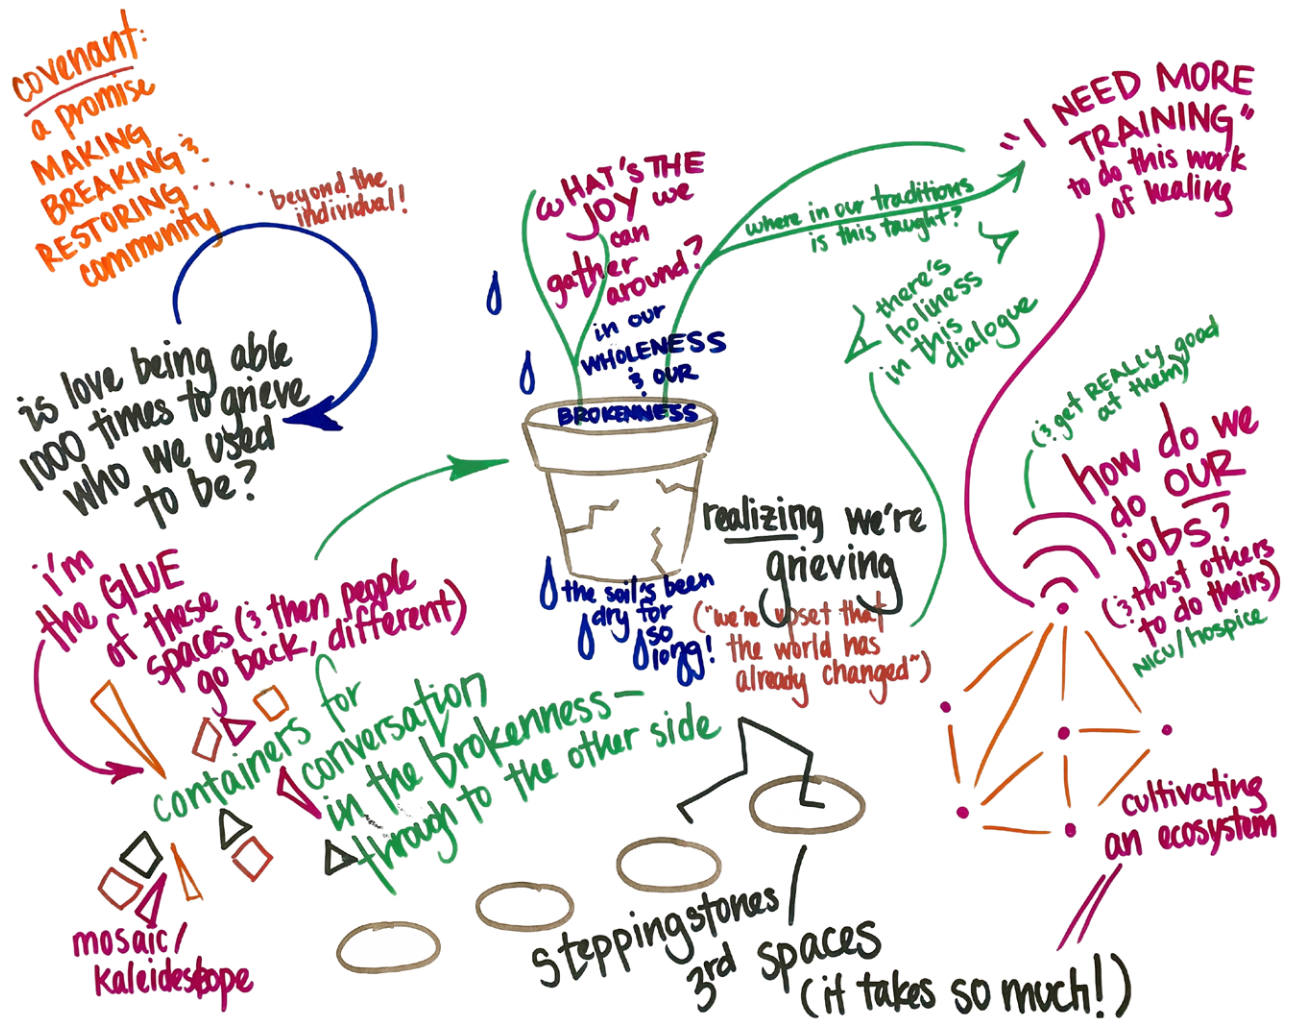 covenant:
a promise
MAKING
BREAKING &
RESTORING
community
beyond the
individual!
is love being able
1000 times to grieve
who we used
to be?
WHAT'S THE
JOY we
can
gather
around?
in our
WHOLENESS
& OUR
BROKENNESS
where in our traditions
is this taught?
"I NEED MORE
TRAINING"
to do this work
of healing
there's
holiness
in this
dialogue
(& get REALLY good
at them)
how do we
do OUR
jobs?
(& trust others
to do theirs)
NICU/hospice
realizing we're
grieving
("we're upset that
the world has
already changed")
the soil's been
dry for
so
long!
i'm
the GLUE
of these
spaces (& then people
go back, different)
containers for
conversation
in the brokenness—
through to the other side
mosaic/
kaleidescope
steppingstones
3rd spaces
(it takes so much!)
cultivating
an ecosystem